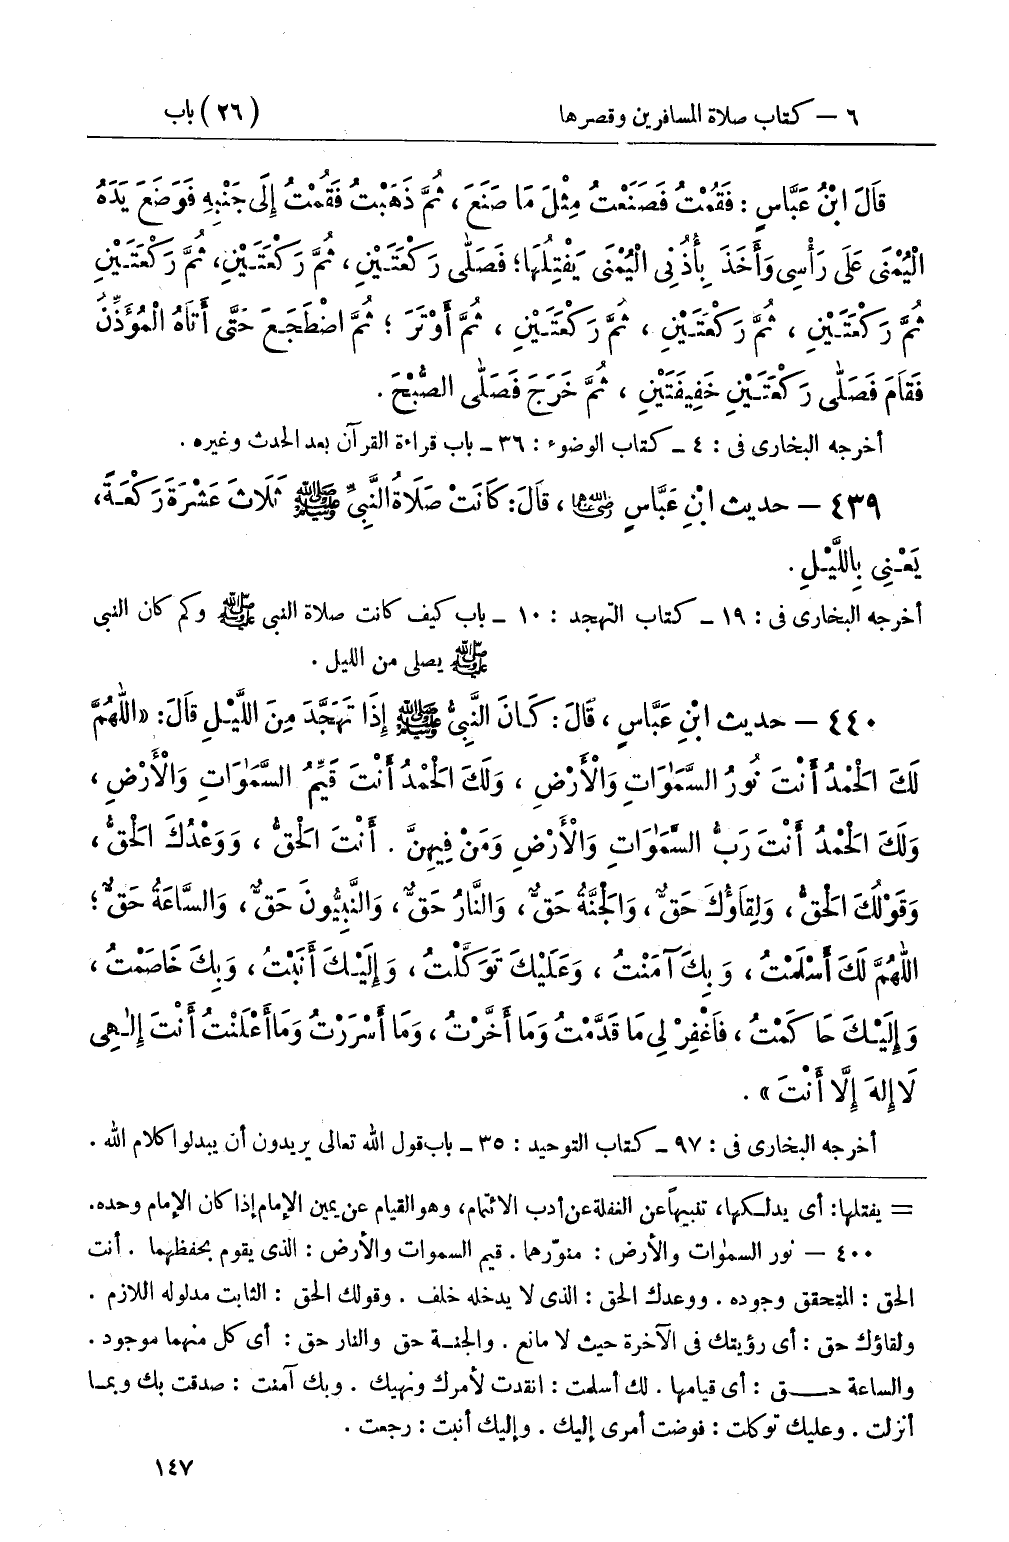 ٦ – كتاب صلاة المسافرين وقصرها (٢٦) باب
قَالَ ابْنُ عَبَّاسٍ : فَقُمْتُ فَصَنَعْتُ مِثْلَ مَا صَنَعَ ، ثُمَّ ذَهَبْتُ فَقُمْتُ إِلَى جَنْبِهِ فَوَضَعَ يَدَهُ
الْيُمْنَى عَلَى رَأْسِى وَأَخَذَ بِأُذُنِى الْيُمْنَى يَفْتِلُهَا؛ فَصَلَّى رَكْعَتَيْنِ ، ثُمَّ رَكْعَتَيْنِ، ثُمَّ رَكْعَتَيْنِ
ثُمَّ رَكْعَتَيْنِ ، ثُمَّ رَكْعَتَيْنِ ، ثُمَّ رَكْعَتَيْنِ ، ثُمَّ أَوْتَرَ ؛ ثُمَّ اضْطَجَعَ حَتَّى أَتَاهُ الْمُؤَذِّنُ
فَقَامَ فَصَلَّى رَكْعَتَيْنِ خَفِيفَتَيْنِ ، ثُمَّ خَرَجَ فَصَلَّى الصُّبْحَ .
أخرجه البخارى فى : ٤ – كتاب الوضوء : ٣٦ – باب قراءة القرآن بعد الحدث وغيره .
٤٣٩ – حديث ابْنِ عَبَّاسٍ رضي الله عنهما ، قَالَ: كَانَتْ صَلَاةُ النَّبِيِّ ﷺ ثَلَاثَ عَشْرَةَ رَكْعَةً،
يَعْنِى بِاللَّيْلِ .
أخرجه البخارى فى : ١٩ – كتاب التهجد : ١٠ – باب كيف كانت صلاة النبى ﷺ وكم كان النبى
ﷺ يصلى من الليل .
٤٤٠ – حديث ابْنِ عَبَّاسٍ ، قَالَ: كَانَ النَّبِيُّ ﷺ إِذَا تَهَجَّدَ مِنَ اللَّيْلِ قَالَ: «اللّٰهُمَّ
لَكَ الْحَمْدُ أَنْتَ نُورُ السَّمَوَاتِ وَالْأَرْضِ ، وَلَكَ الْحَمْدُ أَنْتَ قَيِّمُ السَّمٰوَاتِ وَالْأَرْضِ ،
وَلَكَ الْحَمْدُ أَنْتَ رَبُّ السَّمٰوَاتِ وَالْأَرْضِ وَمَنْ فِيهِنَّ . أَنْتَ الْحَقُّ ، وَوَعْدُكَ الْحَقُّ ،
وَقَوْلُكَ الْحَقُّ ، وَلِقَاؤُكَ حَقٌّ ، وَالْجَنَّةُ حَقٌّ ، وَالنَّارُ حَقٌّ ، وَالنَّبِيُّونَ حَقٌّ ، وَالسَّاعَةُ حَقٌّ ؛
اللّٰهُمَّ لَكَ أَسْلَمْتُ ، وَبِكَ آمَنْتُ ، وَعَلَيْكَ تَوَكَّلْتُ ، وَإِلَيْكَ أَنَبْتُ ، وَبِكَ خَاصَمْتُ ،
وَإِلَيْكَ حَاكَمْتُ ، فَاغْفِرْ لِى مَا قَدَّمْتُ وَمَا أَخَّرْتُ ، وَمَا أَسْرَرْتُ وَمَا أَعْلَنْتُ أَنْتَ إِلٰهِى
لَا إِلٰهَ إِلَّا أَنْتَ » .
أخرجه البخارى فى : ٩٧ – كتاب التوحيد : ٣٥ – باب قول الله تعالى يريدون أن يبدلوا كلام الله .
= يفتلها: أى يدلكها، تنبيهاً عن الغفلة عن أدب الائتمام، وهو القيام عن يمين الإمام إذا كان الإمام وحده.
٤٠٠ – نور السمٰوات والأرض : منوّرهما . قيم السموات والأرض : الذى يقوم بحفظهما . أنت
الحق : المتحقق وجوده . ووعدك الحق : الذى لا يدخله خلف . وقولك الحق : الثابت مدلوله اللازم .
ولقاؤك حق : أى رؤيتك فى الآخرة حيث لا مانع . والجنة حق والنار حق : أى كل منهما موجود .
والساعة حق : أى قيامها . لك أسلمت : انقدت لأمرك ونهيك . وبك آمنت : صدقت بك وبما
أنزلت . وعليك توكلت : فوضت أمرى إليك . وإليك أنبت : رجعت .
١٤٧